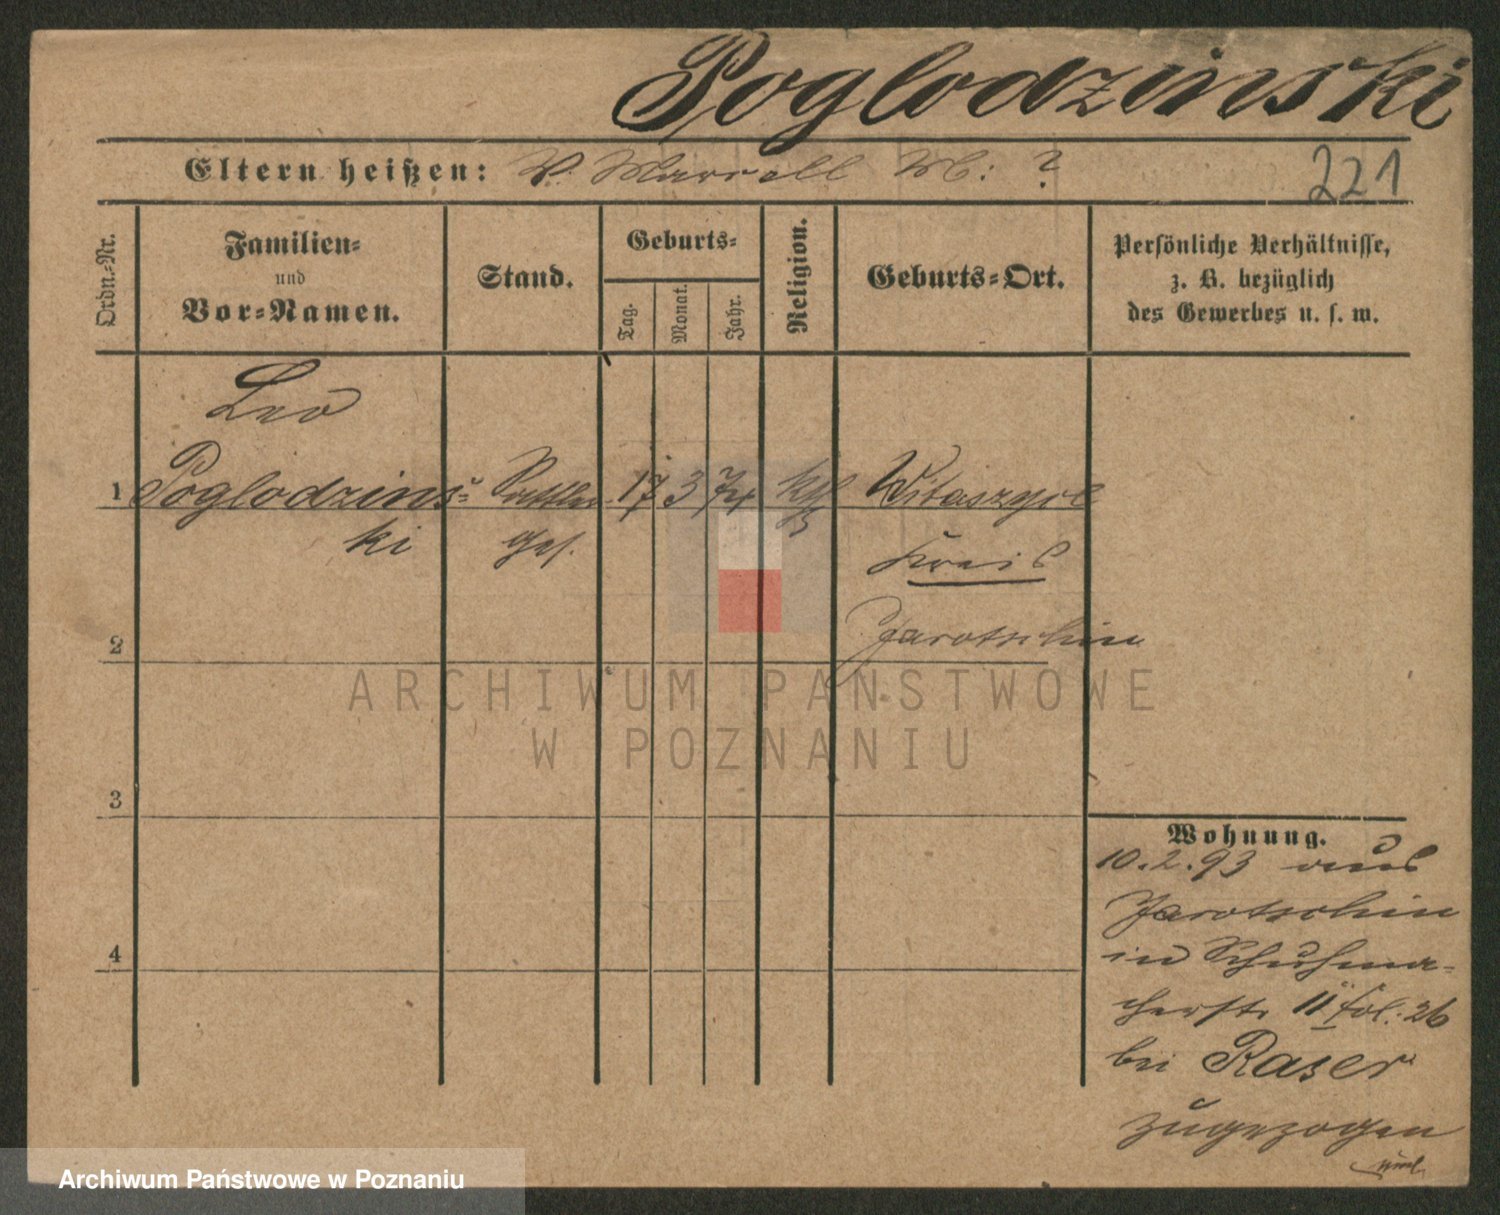 Poglodzinski
Eltern heißen: V. Marcell M: ?
221
Ordn.-Nr.
Familien-
und
Vor-Namen.
Stand.
Geburts-
Tag.
Monat.
Jahr.
Religion.
Geburts-Ort.
Persönliche Verhältnisse,
z. B. bezüglich
des Gewerbes u. s. w.
Leo
1 Poglodzins- Sattler 17 3 74 kth Witaszyce
ki ges.
Kreis
2 Jarotschin
ARCHIWUM PAŃSTWOWE
W POZNANIU
3
4
Wohnung.
10.2.93 aus
Jarotschin
in Schuhma-
cherstr. 11 fol. 26
bei Razer
zugezogen
Archiwum Państwowe w Poznaniu